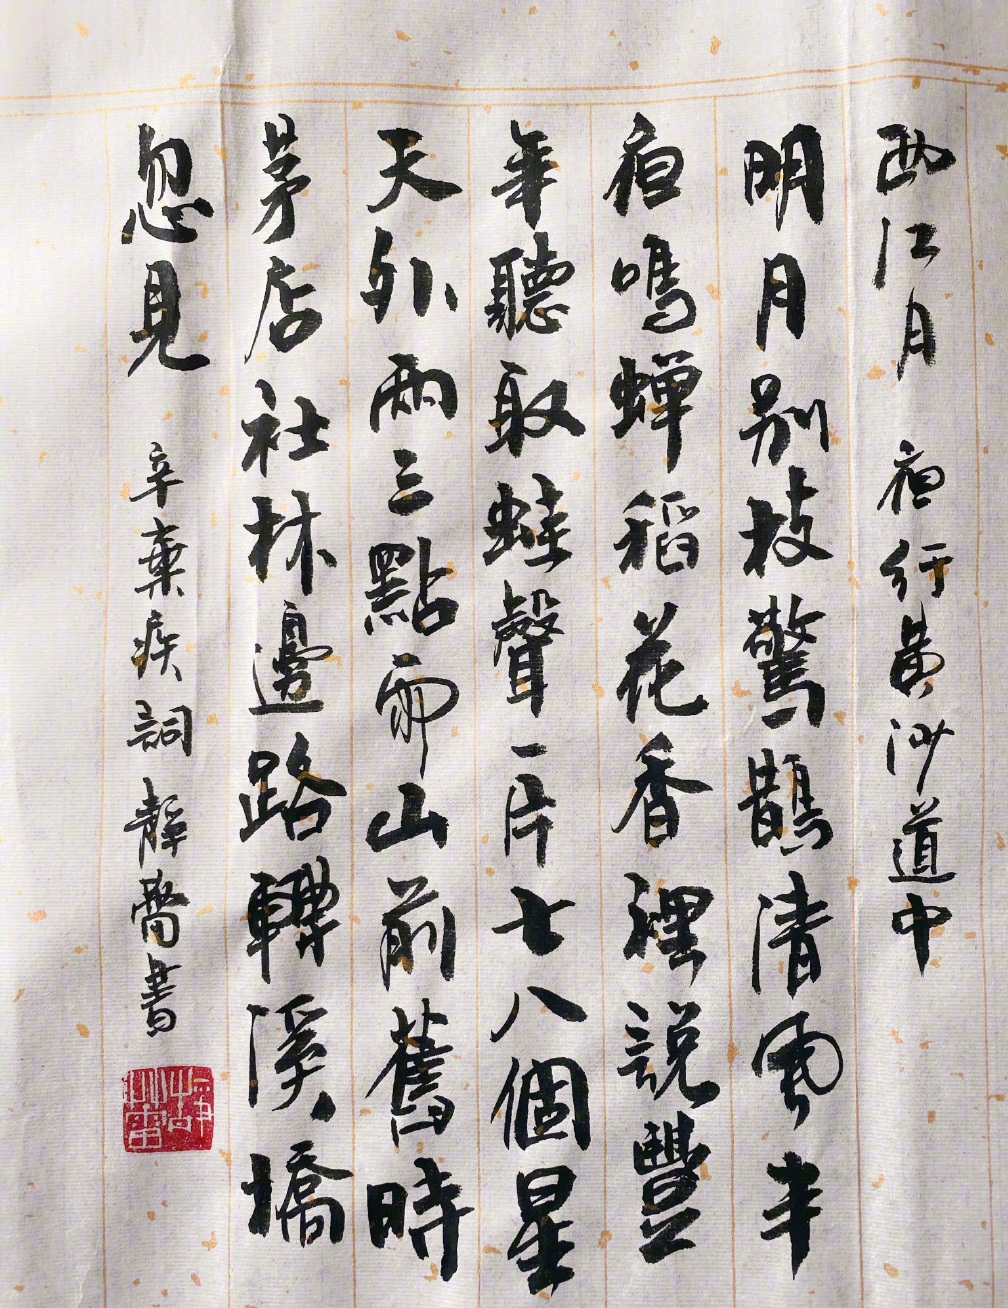 西江月 夜行黃沙道中
明月别枝驚鵲清風半
夜鳴蝉稻花香裡說豐
年聽取蛙聲一片七八個星
天外兩三點雨山前舊時
茅店社林邊路轉溪橋
忽見 辛棄疾詞 靜書